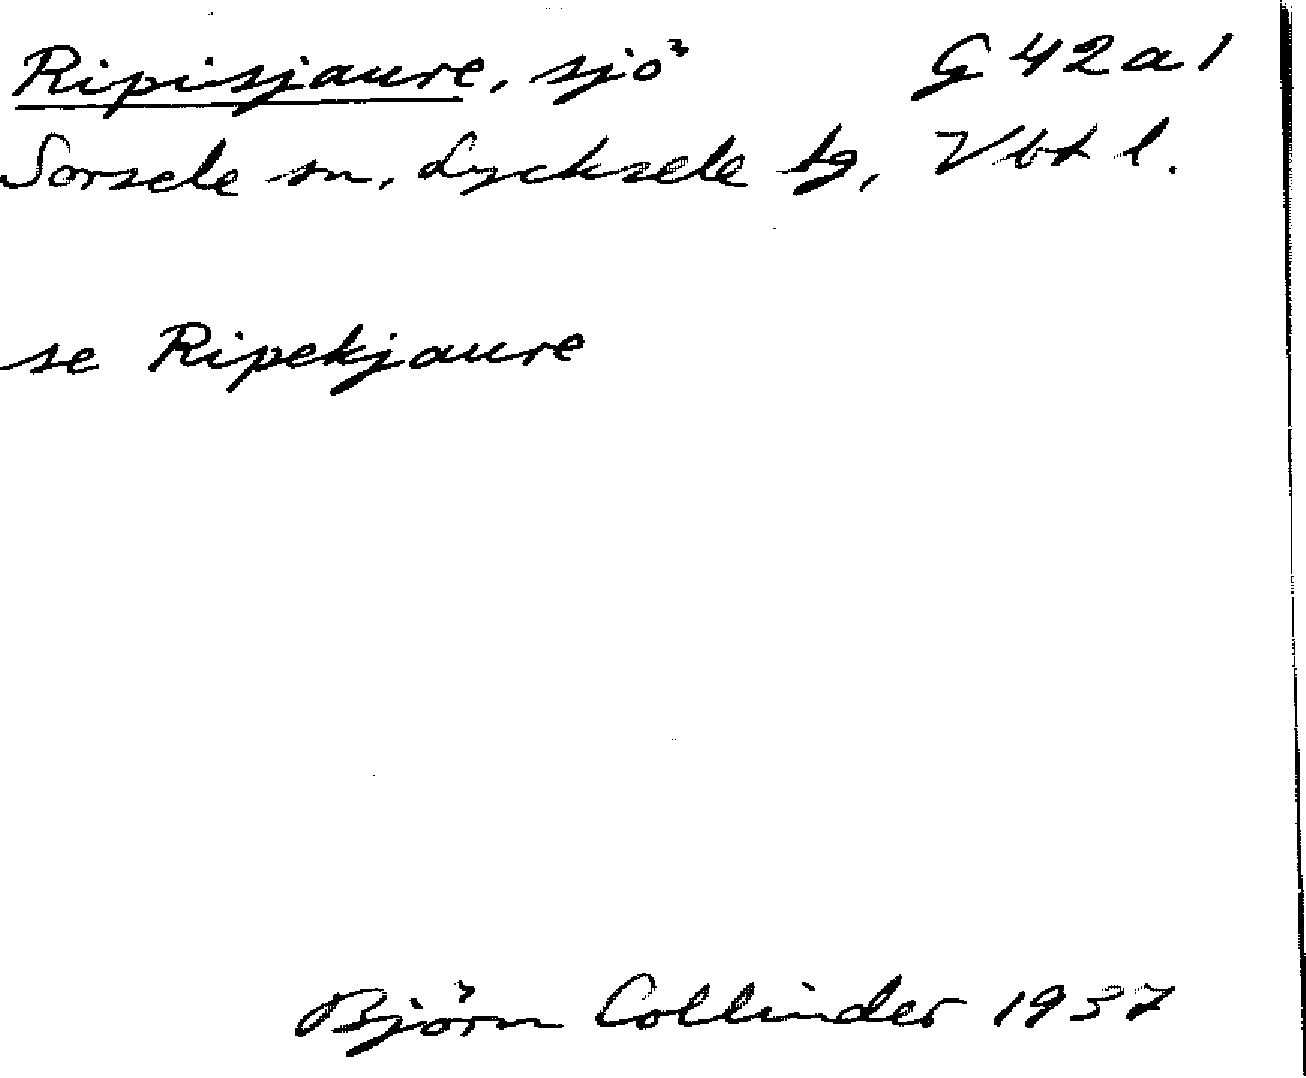 Ripisjaure, sjö G 42 a 1
Sorsele sn, Lycksele tg, Vbt l.
se Ripekjaure
Björn Collinder 1937